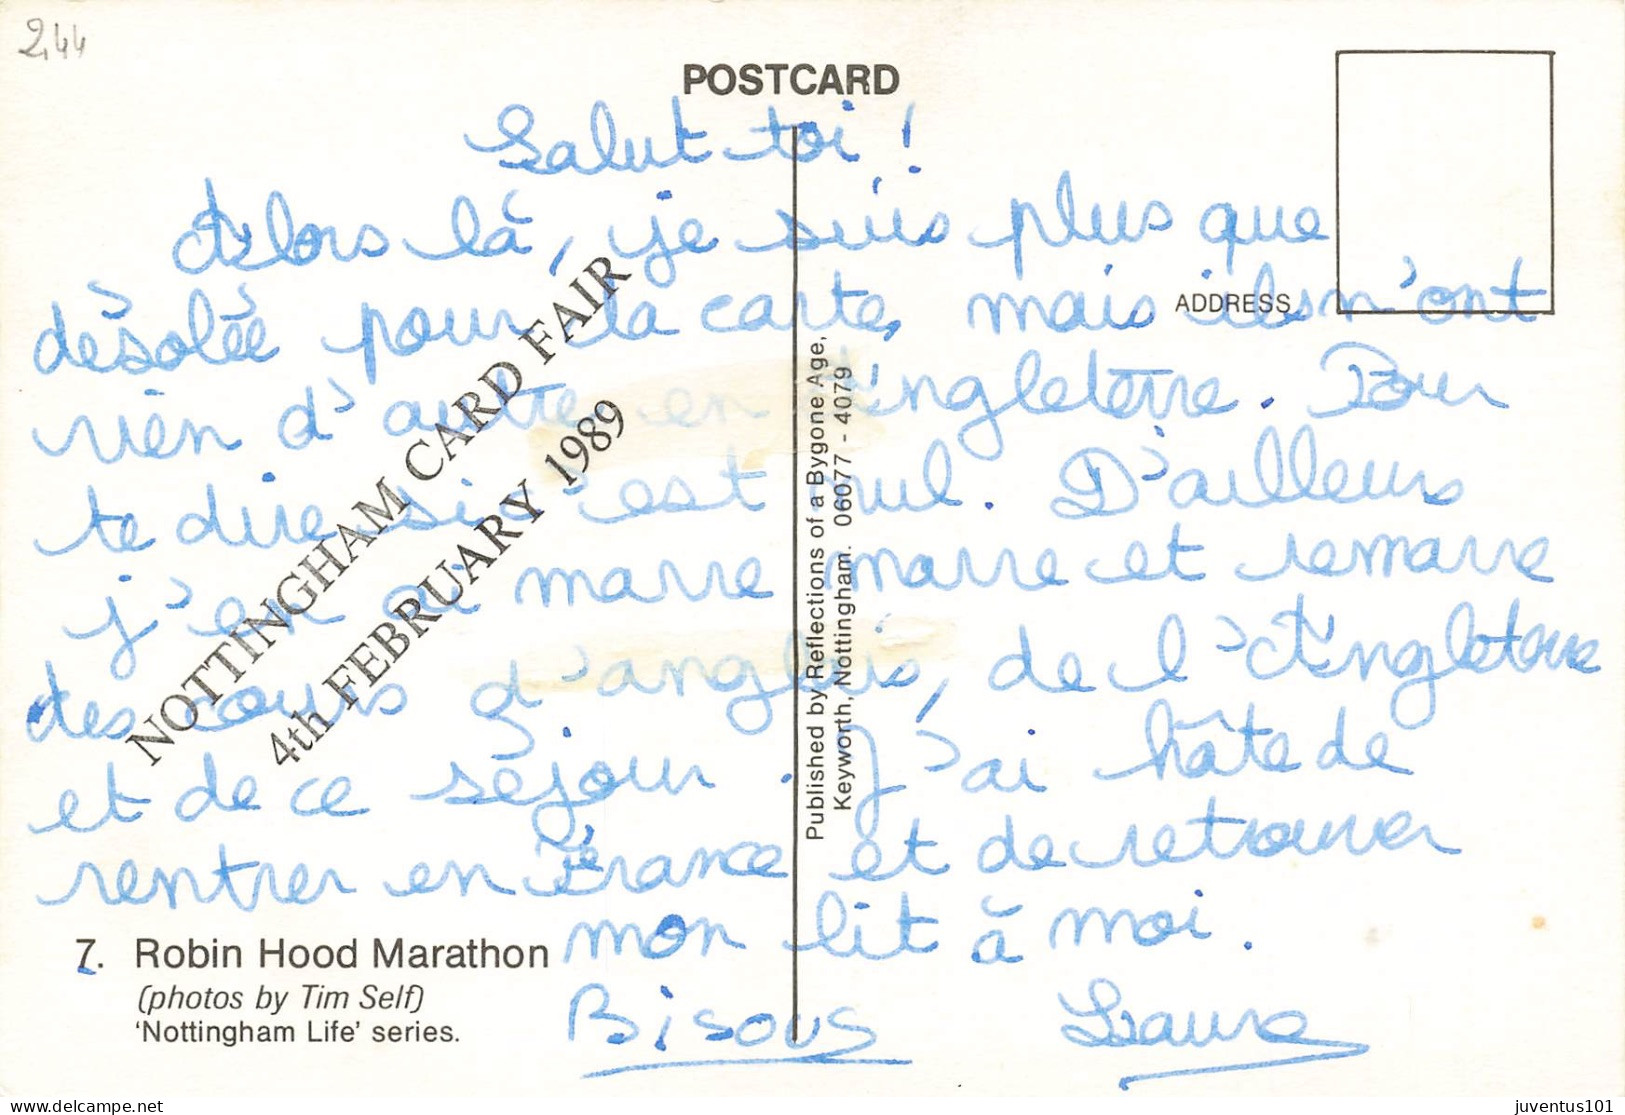 244
POSTCARD
Salut toi !
Alors là, je suis plus que
désolée pour la carte, mais ils n'ont
ADDRESS
rien d'autre en Angleterre. Pour
te dire si c'est nul. D'ailleurs
j'en ai marre marre et remarre
des cours d'anglais, de l'Angleterre
et de ce séjour. J'ai hâte de
rentrer en France et de retrouver
mon lit à moi.
Bisous Laura
NOTTINGHAM CARD FAIR
4th FEBRUARY 1989
Published by Reflections of a Bygone Age,
Keyworth, Nottingham. 06077 - 4079
7. Robin Hood Marathon
(photos by Tim Self)
'Nottingham Life' series.
juventus101